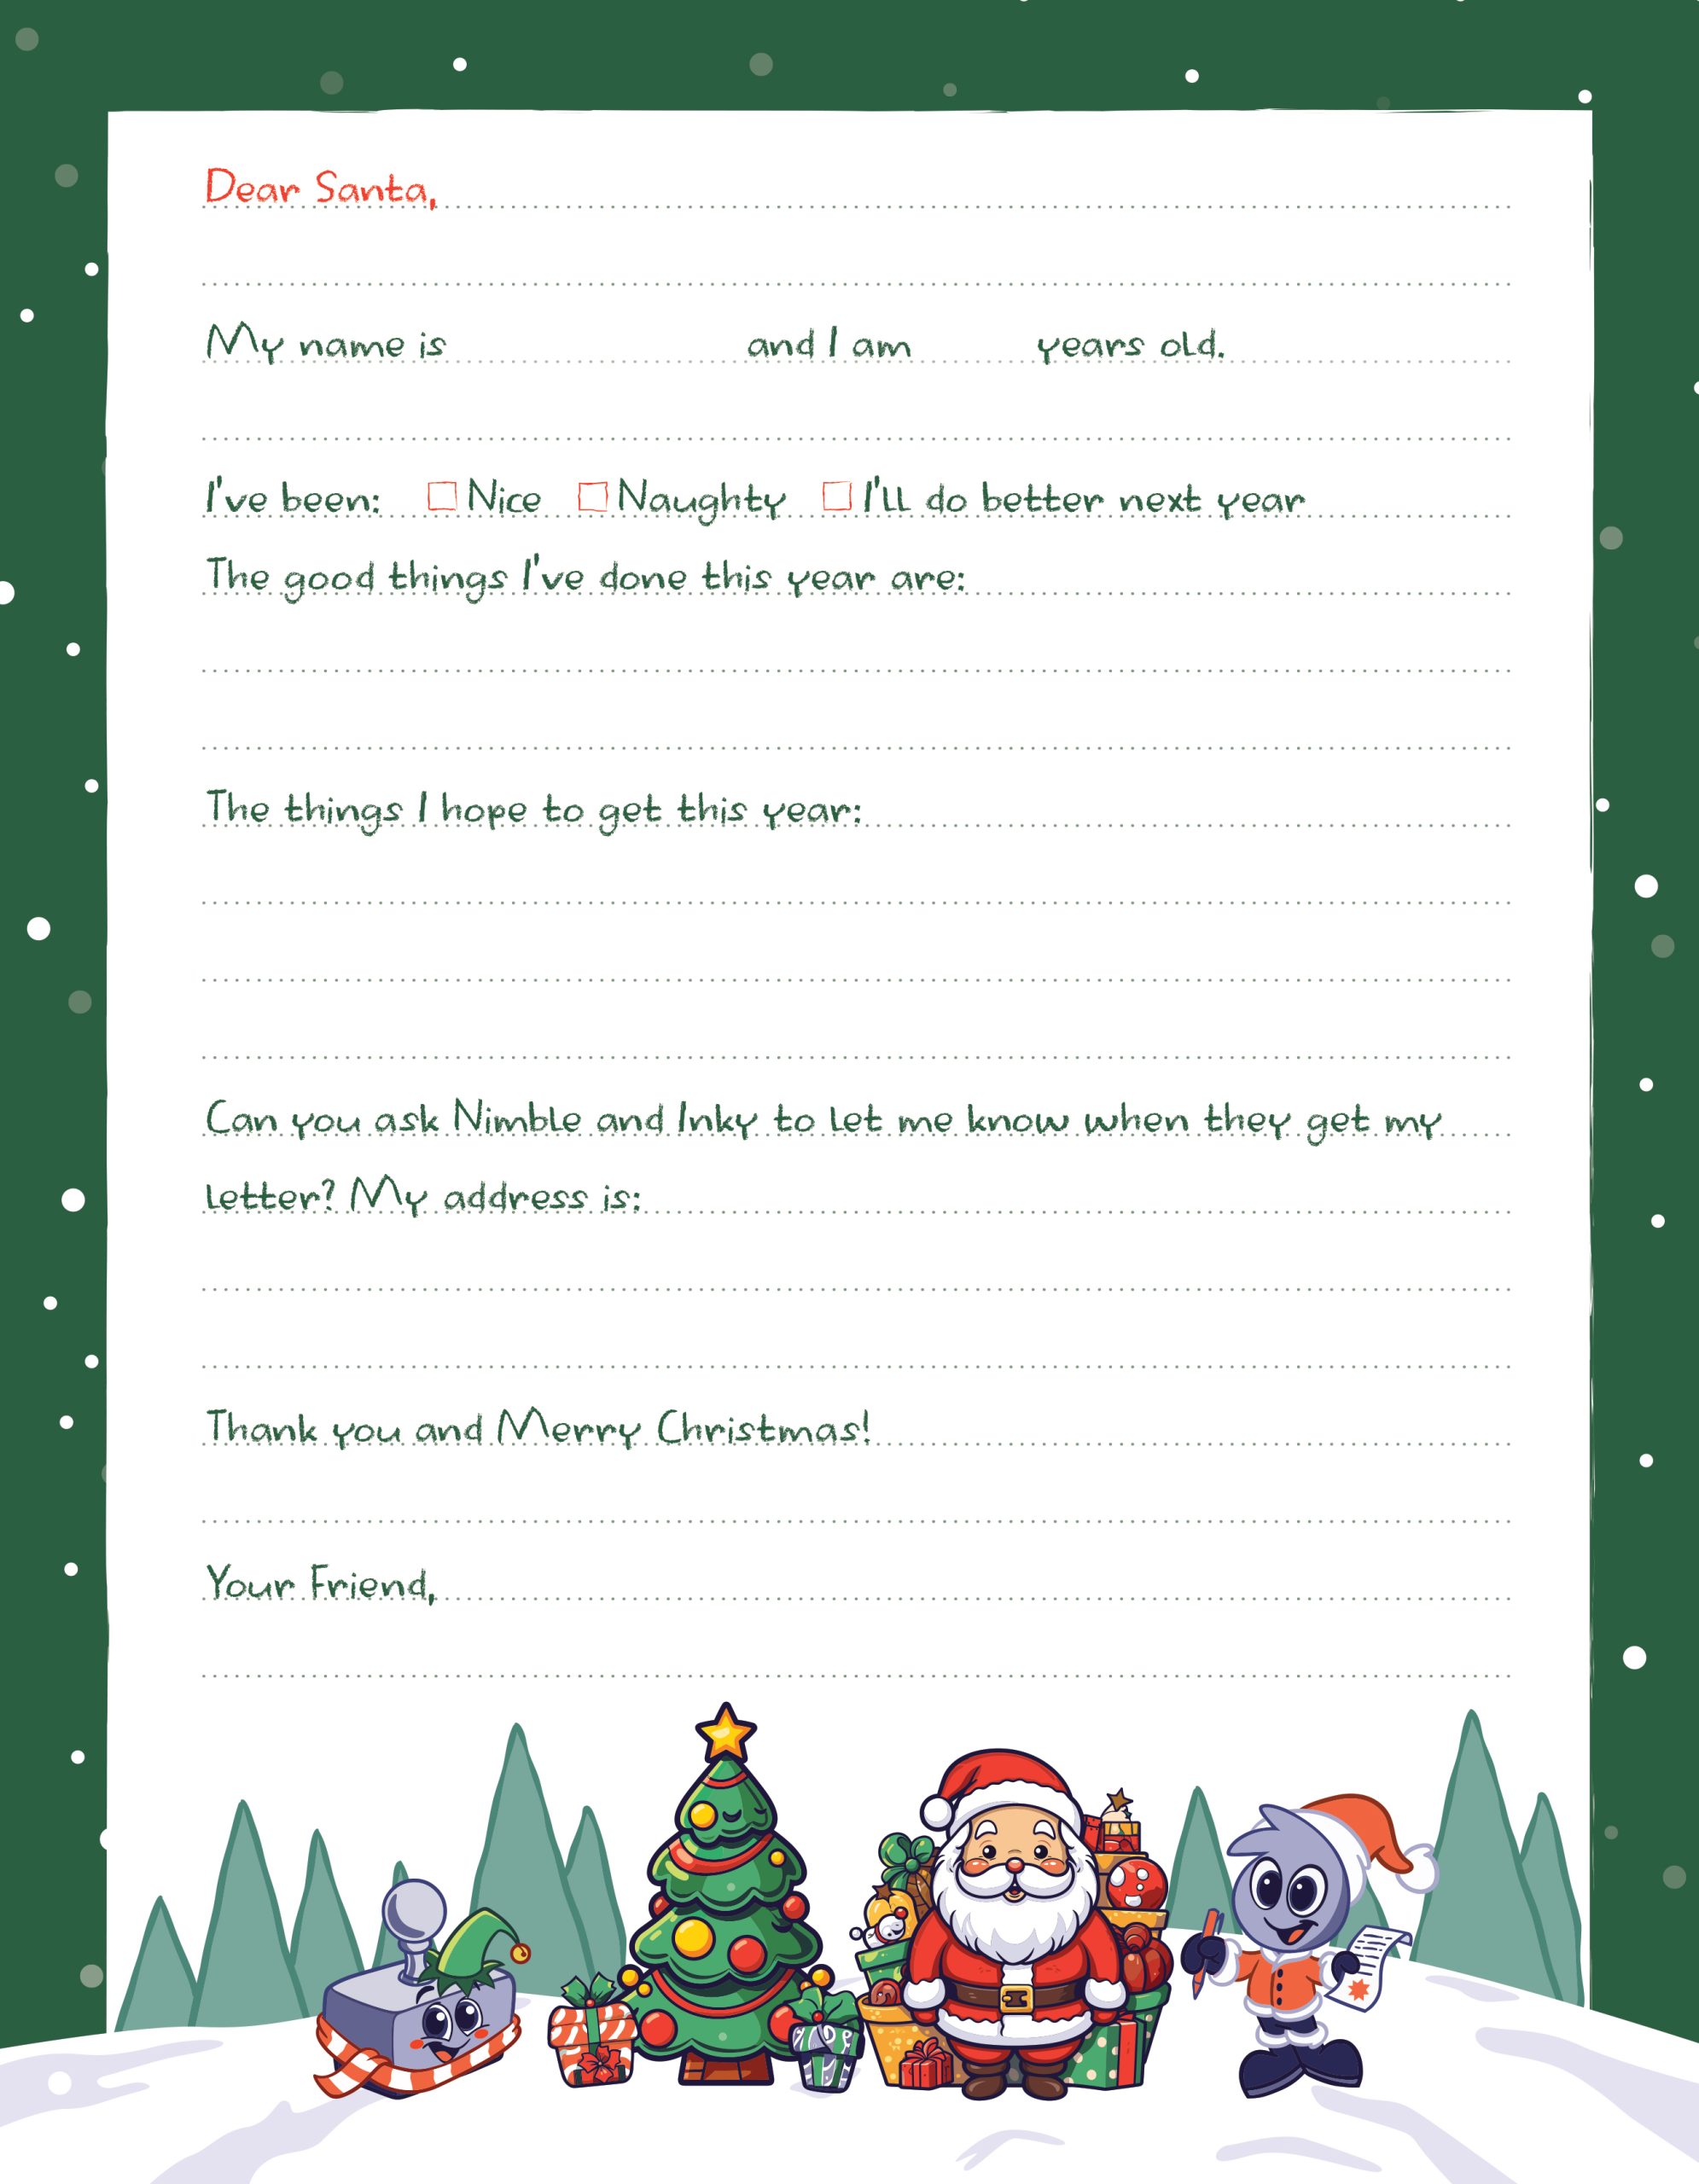 Dear Santa,
My name is and I am years old.
I've been: □ Nice □ Naughty □ I'll do better next year
The good things I've done this year are:
The things I hope to get this year:
Can you ask Nimble and Inky to let me know when they get my
letter? My address is:
Thank you and Merry Christmas!
Your Friend,